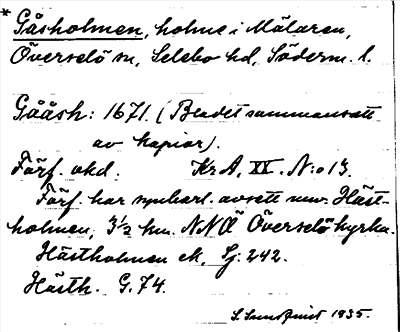 * Gåsholmen, holme i Mälaren,
Överselö sn, Selebo hd, Söderm. l.
Gååsh: 1671. (Bladet sammansatt
av kopior).
Förf. okd. KrA, XX. N:o 13.
Förf. har synbarl. avsett nuv. Häst-
holmen, 3½ km. NNÖ Överselö kyrka.
Hästholmen ek. Sj. 242.
Hästh. G. 74.
S. Sundquist 1935.